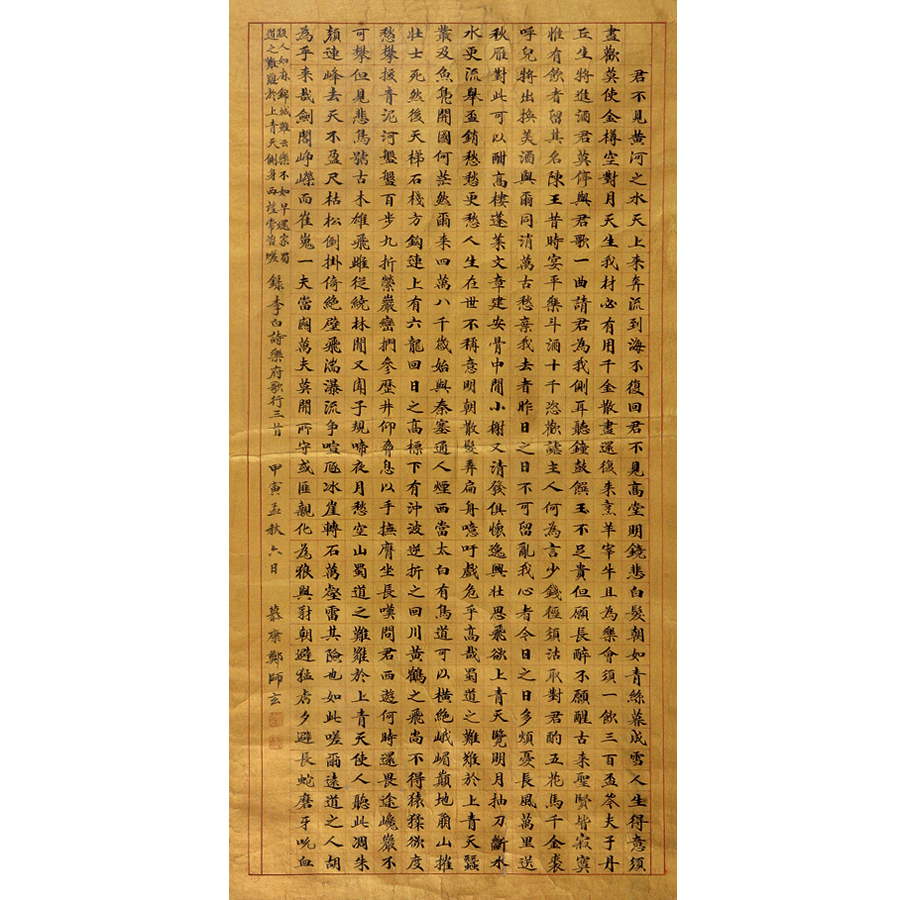 君不見黃河之水天上来奔流到海不復回君不見高堂明鏡悲白髮朝如青絲暮成雪人生得意須
盡歡莫使金樽空對月天生我材必有用千金散盡還復来烹羊宰牛且為樂會須一飲三百盃岑夫子丹
丘生將進酒君莫停與君歌一曲請君為我側耳聽鐘鼓饌玉不足貴但願長醉不願醒古来聖賢皆寂寞
惟有飲者留其名陳王昔時宴平樂斗酒十千恣歡謔主人何為言少錢徑須沽取對君酌五花馬千金裘
呼兒將出換美酒與爾同消萬古愁棄我去者昨日之日不可留亂我心者今日之日多煩憂長風萬里送
秋雁對此可以酣高樓蓬萊文章建安骨中間小榭又清發俱懷逸興壯思飛欲上青天覽明月抽刀斷水
水更流舉盃銷愁愁更愁人生在世不稱意明朝散髮弄扁舟噫吁戲危乎高哉蜀道之難難於上青天蠶
叢及魚鳧開國何茫然爾来四萬八千歲始與秦塞通人煙西當太白有鳥道可以橫絕峨嵋巔地崩山摧
壯士死然後天梯石棧方鉤連上有六龍回日之高標下有沖波逆折之回川黃鶴之飛尚不得猿猱欲度
愁攀援青泥河盤盤百步九折縈巖巒捫參歷井仰脅息以手撫膺坐長嘆問君西遊何時還畏途巉巖不
可攀但見悲鳥號古木雄飛雌從繞林間又聞子規啼夜月愁空山蜀道之難難於上青天使人聽此凋朱
顏連峰去天不盈尺枯松倒掛倚絕壁飛湍瀑流爭喧豗冰崖轉石萬壑雷其險也如此嗟爾遠道之人胡
為乎来哉劍閣崢嶸而崔嵬一夫當關萬夫莫開所守或匪親化為狼與豺朝避猛虎夕避長蛇磨牙吮血
殺人如麻錦城雖云樂不如早還家蜀
道之難難於上青天側身西望常咨嗟
錄李白詩樂府歌行三首 甲寅孟秋六日 慕康鄭師玄